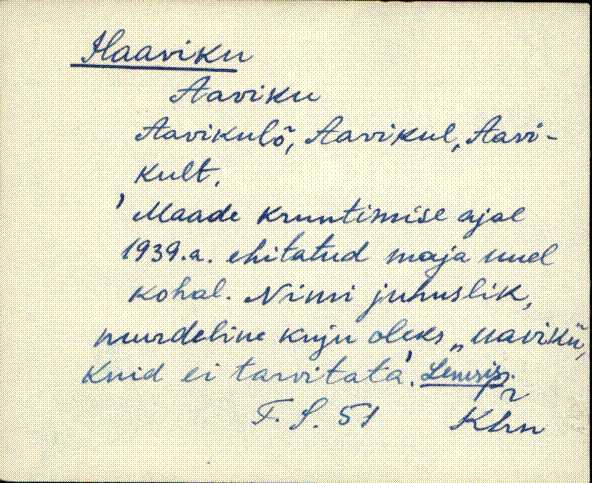 Haaviku
Aaviku
Aavikulõ, Aavikul, Aavi-
kult.
'Maade kruntimise ajal
1939.a. ehitatud maja uuel
kohal. Nimi juhuslik,
murdeline kuju oleks „
kuid ei tarvitata'.
F. S. 51 Khn